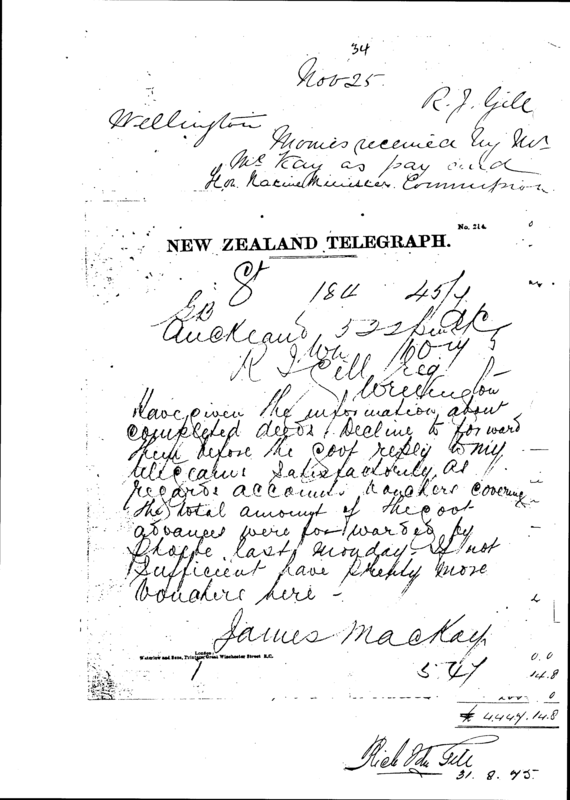 34
Nov 25
R. J. Gill
Wellington
Monies received by Mr
McKay as pay and
Hon. Native Minister Commission
No. 214
0
NEW ZEALAND TELEGRAPH.
Ct
8 184 45/4
Auckland 522
R J Gill
Wellington
Have given the information about
completed deeds. Decline to forward
them before the Govt reply to my
telegrams satisfactorily as
regards account. Vouchers covering
the total amount of the Govt
advances were forwarded by
last Monday. If not
Sufficient have plenty more
Vouchers here –
James Mackay
London.
Waterlow and Sons, Printers, Great Winchester Street E.C.
1 547
0.0
14.8
0
£ 4447.14.8
Rich John Gill
31. 8. 75.